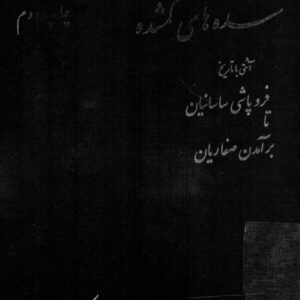 چاپ دوم
سده های گمشده
آشتی با تاریخ
فروپاشی ساسانیان
تا
برآمدن صفاریان